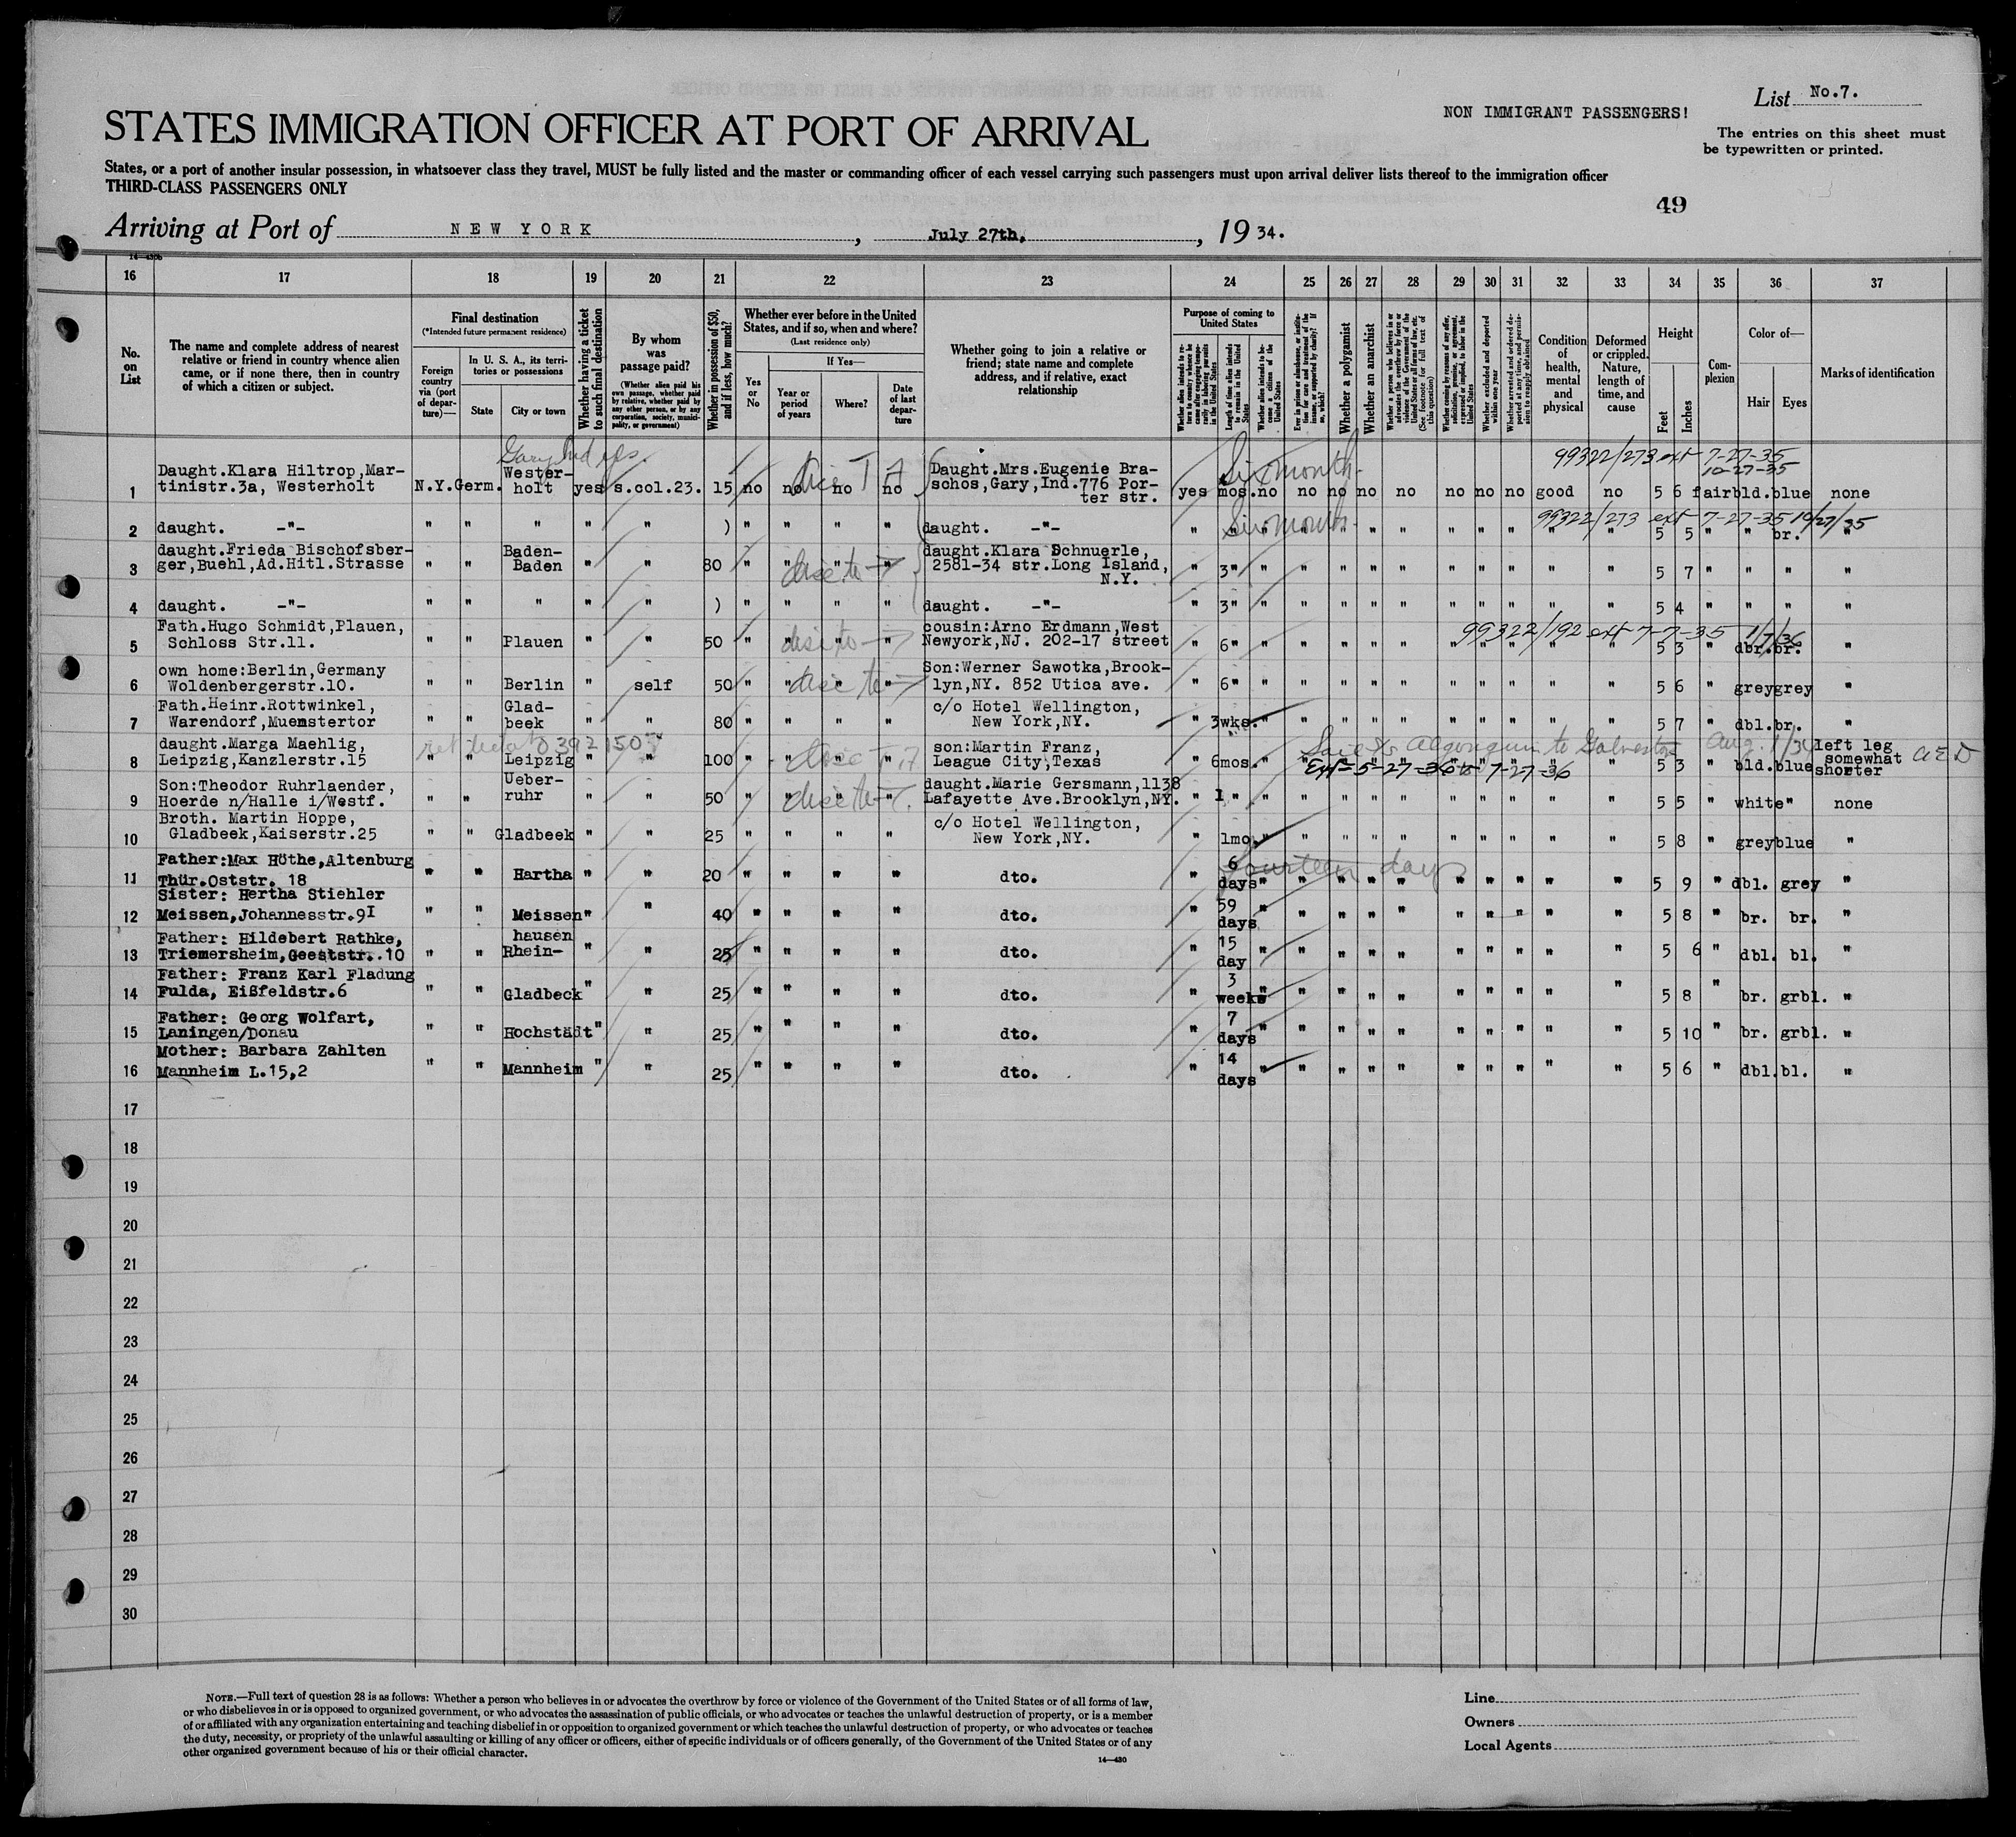 List No.7.
NON IMMIGRANT PASSENGERS!
STATES IMMIGRATION OFFICER AT PORT OF ARRIVAL
The entries on this sheet must
be typewritten or printed.
States, or a port of another insular possession, in whatsoever class they travel, MUST be fully listed and the master or commanding officer of each vessel carrying such passengers must upon arrival deliver lists thereof to the immigration officer
THIRD-CLASS PASSENGERS ONLY
49
Arriving at Port of NEW YORK, July 27th, 1934.
14—430b
16 17 18 19 20 21 22 23 24 25 26 27 28 29 30 31 32 33 34 35 36 37
No. on List
The name and complete address of nearest relative or friend in country whence alien came, or if none there, then in country of which a citizen or subject.
Final destination
(*Intended future permanent residence)
Foreign country via (port of departure)—
In U. S. A., its territories or possessions
State
City or town
Whether having a ticket to such final destination
By whom was passage paid?
(Whether alien paid his own passage, whether paid by relative, whether paid by any other person, or by any corporation, society, municipality, or government)
Whether in possession of $50, and if less, how much?
Whether ever before in the United States, and if so, when and where?
(Last residence only)
Yes or No
If Yes—
Year or period of years
Where?
Date of last departure
Whether going to join a relative or friend; state name and complete address, and if relative, exact relationship
Purpose of coming to United States
Length of time alien intends to remain in the United States
Whether alien intends to become a citizen of the United States
Whether a polygamist
Whether an anarchist
(See footnote for full text of this question)
Whether excluded and deported within one year
Condition of health, mental and physical
Deformed or crippled. Nature, length of time, and cause
Height
Feet
Inches
Complexion
Color of—
Hair
Eyes
Marks of identification
Gary Ind
99322/273 ext 7-27-35
10-27-35
Six month
1 Daught.Klara Hiltrop,Mar- Wester- Daught.Mrs.Eugenie Bra-
tinistr.3a, Westerholt N.Y. Germ. holt yes s.col.23. 15 no no no no schos,Gary,Ind.776 Por-
ter str. yes mos. no no no no no no no no good no 5 6 fair bld. blue none
99322/273 ext 7-27-35 10/27/35
Six months
2 daught. -"- " " " " " ) " " " " daught. -"- " " " " " " " " " " " " 5 5 " " br. "
3 daught.Frieda Bischofsber- Baden- daught.Klara Schnuerle,
ger,Buehl,Ad.Hitl.Strasse " " Baden " " 80 " " " " 2581-34 str.Long Island,
N.Y. " 3" " " " " " " " " " " 5 7 " " " "
4 daught. -"- " " " " " ) " " " " daught. -"- " 3" " " " " " " " " " " 5 4 " " " "
99322/192 ext 7-7-35 1/7/36
5 Fath.Hugo Schmidt,Plauen, cousin:Arno Erdmann,West
Schloss Str.11. " " Plauen " " 50 " " " " Newyork,NJ. 202-17 street " 6" " " " " " " " " " " 5 3 " dbr. br. "
6 own home:Berlin,Germany Son:Werner Sawotka,Brook-
Woldenbergerstr.10. " " Berlin " self 50 " " " " lyn,NY. 852 Utica ave. " 6" " " " " " " " " " " 5 6 " grey grey "
7 Fath.Heinr.Rottwinkel, Glad- c/o Hotel Wellington,
Warendorf,Muenstertor " " beek " " 80 " " " " New York,NY. " 3wks. " " " " " " " " " " 5 7 " dbl. br. "
8 daught.Marga Maehlig, son:Martin Franz,
Leipzig,Kanzlerstr.15 " " Leipzig " " 100 " " " " League City,Texas " 6mos. " " " " " " " " " " 5 3 " bld. blue left leg
somewhat
shorter
Algonquin to Galveston Aug. 1/34
Ext 5-27-36 to 7-27-36
9 Son:Theodor Ruhrlaender, Ueber- daught.Marie Gersmann,1138
Hoerde n/Halle i/Westf. " " ruhr " " 50 " " " " Lafayette Ave.Brooklyn,NY. " 1 " " " " " " " " " " " 5 5 " white " none
10 Broth. Martin Hoppe, c/o Hotel Wellington,
Gladbeek,Kaiserstr.25 " " Gladbeek " " 25 " " " " New York,NY. " 1mo. " " " " " " " " " " 5 8 " grey blue "
fourteen days
11 Father:Max Höthe,Altenburg
Thür.Oststr. 18 " " Hartha " " 20 " " " " dto. " 6 days " " " " " " " " " " 5 9 " dbl. grey "
12 Sister: Hertha Stiehler
Meissen,Johannesstr.9I " " Meissen " " 40 " " " " dto. " 59 days " " " " " " " " " " 5 8 " br. br. "
13 Father: Hildebert Rathke, hausen
Triemersheim,Geeststr..10 " " Rhein- " " 25 " " " " dto. " 15 day " " " " " " " " " " 5 6 " dbl. bl. "
14 Father: Franz Karl Fladung
Fulda, Eißfeldstr.6 " " Gladbeck " " 25 " " " " dto. " 3 weeks " " " " " " " " " " 5 8 " br. grbl. "
15 Father: Georg Wolfart,
Laningen/Donau " " Hochstädt " " 25 " " " " dto. " 7 days " " " " " " " " " " 5 10 " br. grbl. "
16 Mother: Barbara Zahlten
Mannheim L.15,2 " " Mannheim " " 25 " " " " dto. " 14 days " " " " " " " " " " 5 6 " dbl. bl. "
17
18
19
20
21
22
23
24
25
26
27
28
29
30
NOTE.—Full text of question 28 is as follows: Whether a person who believes in or advocates the overthrow by force or violence of the Government of the United States or of all forms of law,
or who disbelieves in or is opposed to organized government, or who advocates the assassination of public officials, or who advocates or teaches the unlawful destruction of property, or is a member
of or affiliated with any organization entertaining and teaching disbelief in or opposition to organized government or which teaches the unlawful destruction of property, or who advocates or teaches
the duty, necessity, or propriety of the unlawful assaulting or killing of any officer or officers, either of specific individuals or of officers generally, of the Government of the United States or of any
other organized government because of his or their official character.
14—430
Line
Owners
Local Agents